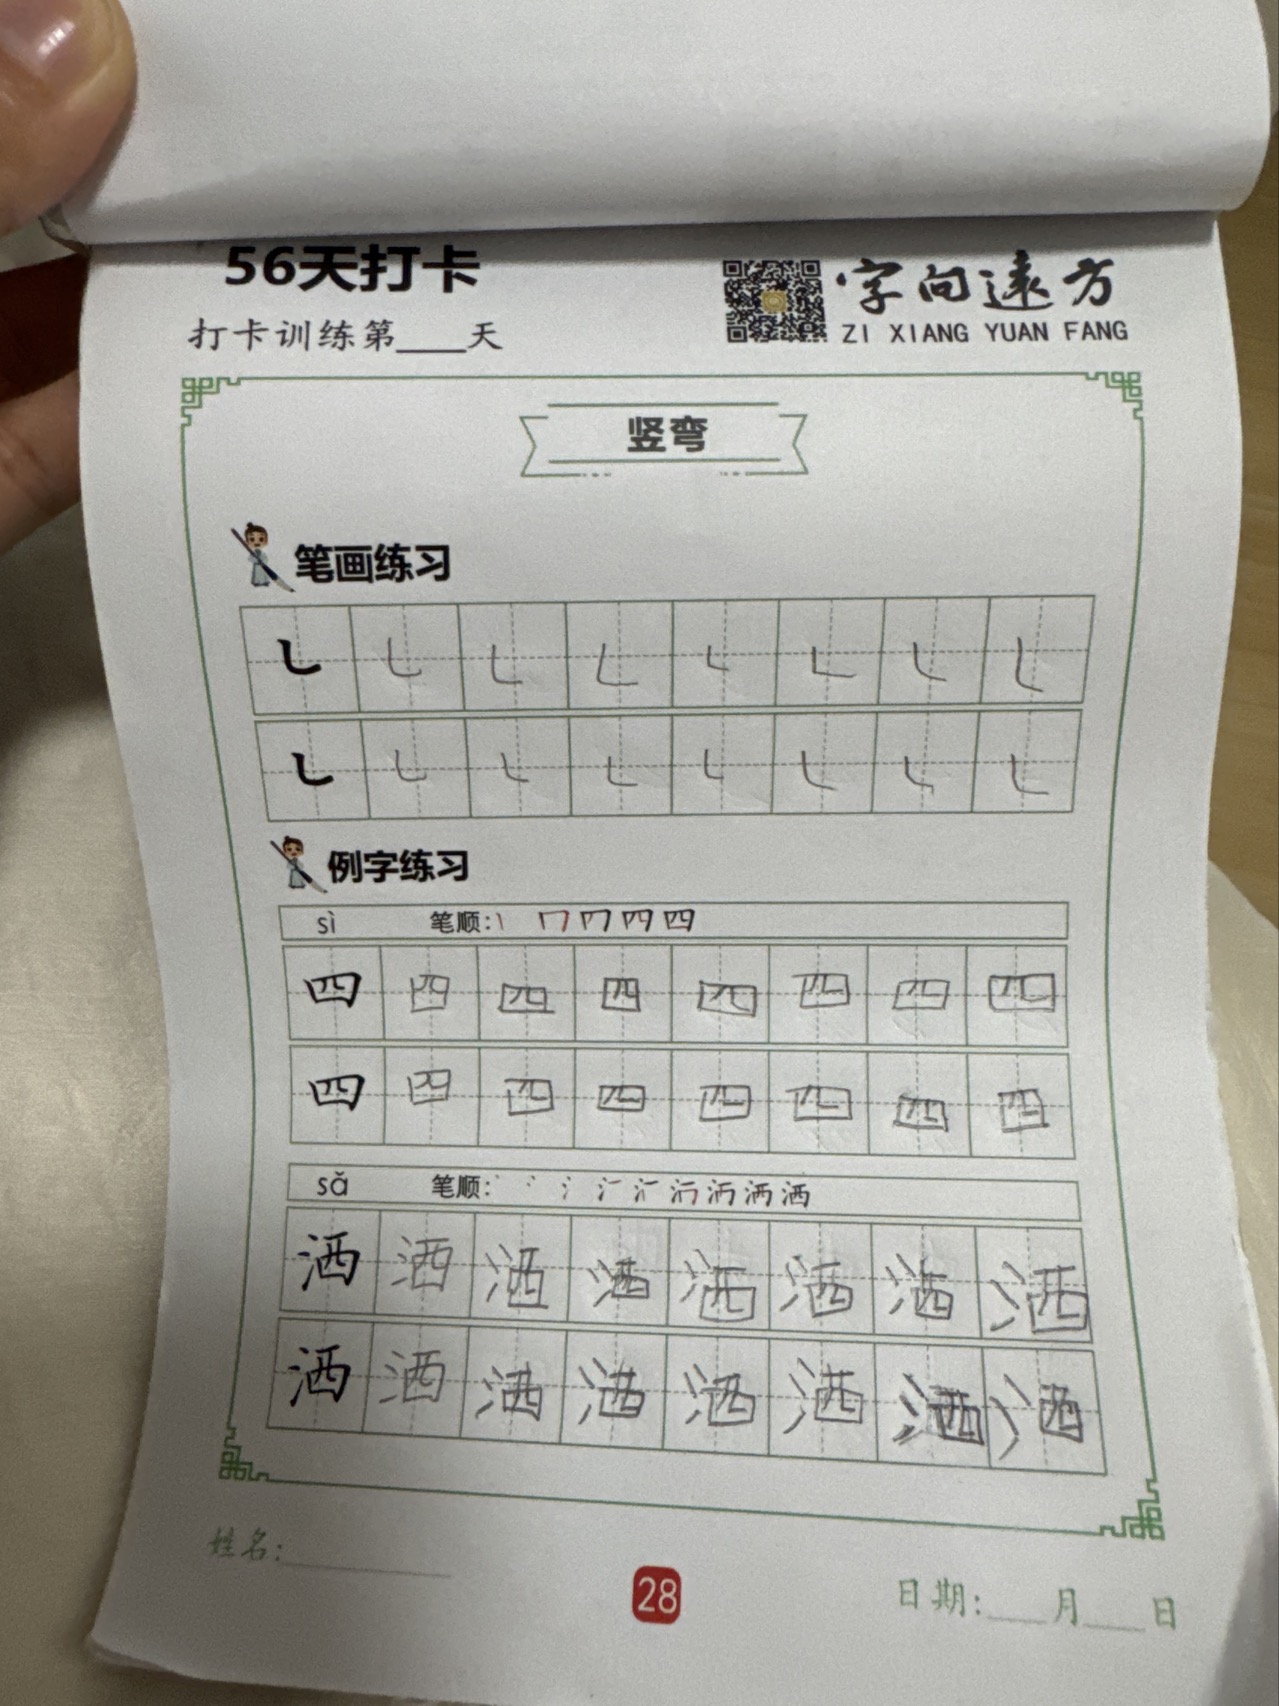 56天打卡
字向遠方
打卡训练第____天
ZI XIANG YUAN FANG
竖弯
笔画练习
㇄ ㇄ ㇄ ㇄ ㇄ ㇄ ㇄ ㇄
㇄ ㇄ ㇄ ㇄ ㇄ ㇄ ㇄ ㇄
例字练习
sì 笔顺: 四
四 四 四 四 四 四 四 四
四 四 四 四 四 四 四 四
sǎ 笔顺: 洒
洒 洒 洒 洒 洒 洒 洒 洒
洒 洒 洒 洒 洒 洒 洒 洒
姓名:__________
28
日期:____月____日